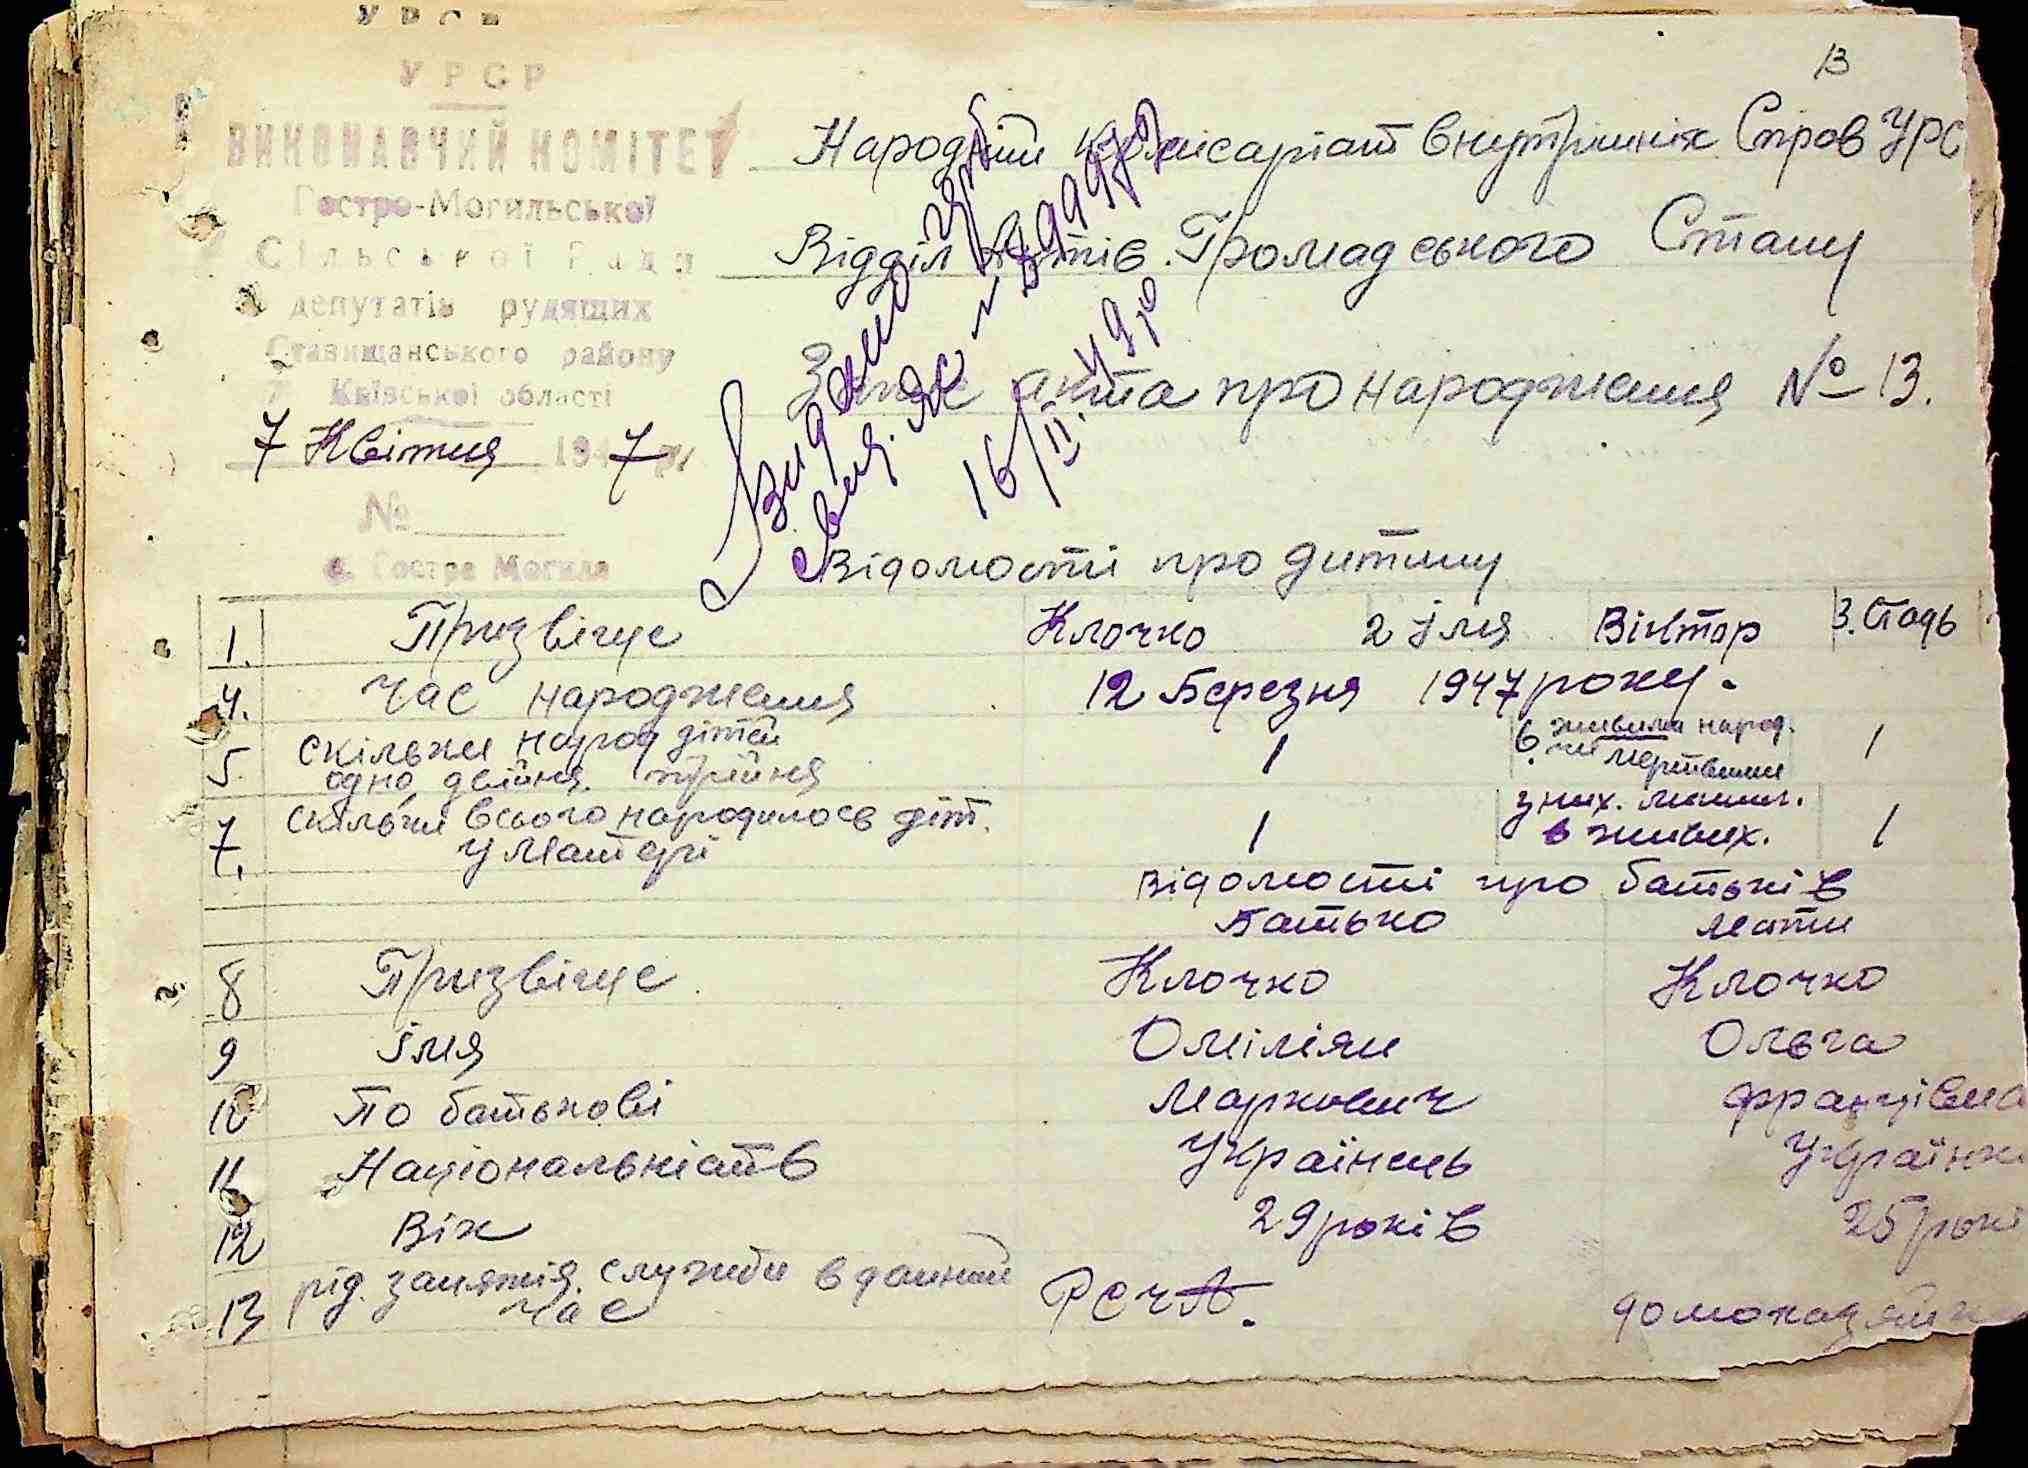 УРСР
УРСР
13
ВИКОНАВЧИЙ КОМІТЕТ
Гостро-Могильської
Сільської Ради
депутатів трудящих
Ставищанського району
Київської області
7 Квітня 1947 р.
№
с. Гостра Могила
Народній Комісаріат Внутрішніх Справ УРС
Відділ Актів Громадського Стану
Запис акта про народження № 13.
Видано
16/II. 49 р
Відомості про дитину
1. Призвіще Клочко 2 імя Віктор 3. Стать
4. Час народження 12 Березня 1947 року.
5. скільки народ дітей одно, двійня, трійня 1 6. живими народ. чи мертвими 1
7. скільки всього народилось діт. у матері 1 з них. лишил. в живих. 1
Відомості про батьків
Батько Мати
8 Призвіще Клочко Клочко
9 імя Оміліян Ольга
10 По батькові Маркович Францівна
11 Національність Українець Українк
12 Вік 29 років 25 рокі
13 рід. заняття, служби в данний час домохазяйк